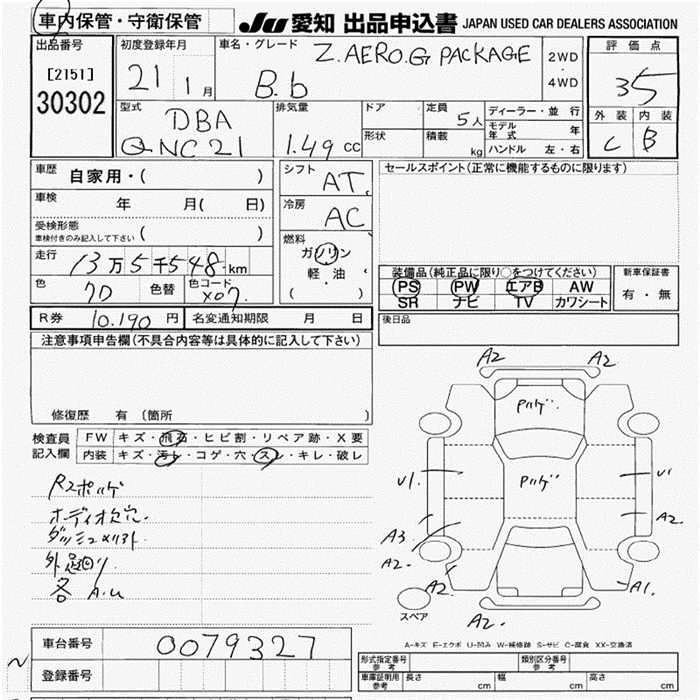 車内保管・守衛保管
JU 愛知 出品申込書 JAPAN USED CAR DEALERS ASSOCIATION
出品番号
[2151]
30302
初度登録年月
21 1月
車名・グレード
Z.AERO.G PACKAGE
B.b
2WD
・
4WD
評価点
35
外装 内装
C B
型式
DBA
QNC21
排気量
1.49 CC
ドア
形状
定員
5人
積載
kg
ディーラー・並行
モデル年式 年
ハンドル 左・右
車歴
自家用・( )
車検 年 月( 日)
受検形態
車検付きのみ記入して下さい ( )
走行 13万5千548km
色 7D 色替 色コード X07
シフト
AT
冷房
AC
燃料
ガソリン
軽・油
( )
セールスポイント(正常に機能するものに限ります)
装備品(純正品に限り○をつけてください)
PS PW エアB AW
SR ナビ TV カワシート
新車保証書
有・無
R券 10.190 円 名変通知期限 月 日
後日品
注意事項申告欄(不具合内容等は具体的に記入して下さい)
修復歴 有 (箇所
検査員記入欄
FW キズ・飛石・ヒビ割・リペア跡・X要
内装 キズ・汚レ・コゲ・穴・スレ・キレ・破レ
Rスポハゲ
オーディオ欠穴.
外足回り
各 A.U
A2 A2
Pハゲ.
Pハゲ
U1. U1
A3 A2
A2- A2
A1.
A2-
スペア
A-キズ E-エクボ U-凹み W-補修跡 S-サビ C-腐食 XX-交換済
車台番号 0079327
登録番号
形式指定番号 参考 類別区分番号 参考
車庫証明用 参考 長さ cm 幅 cm 高さ cm